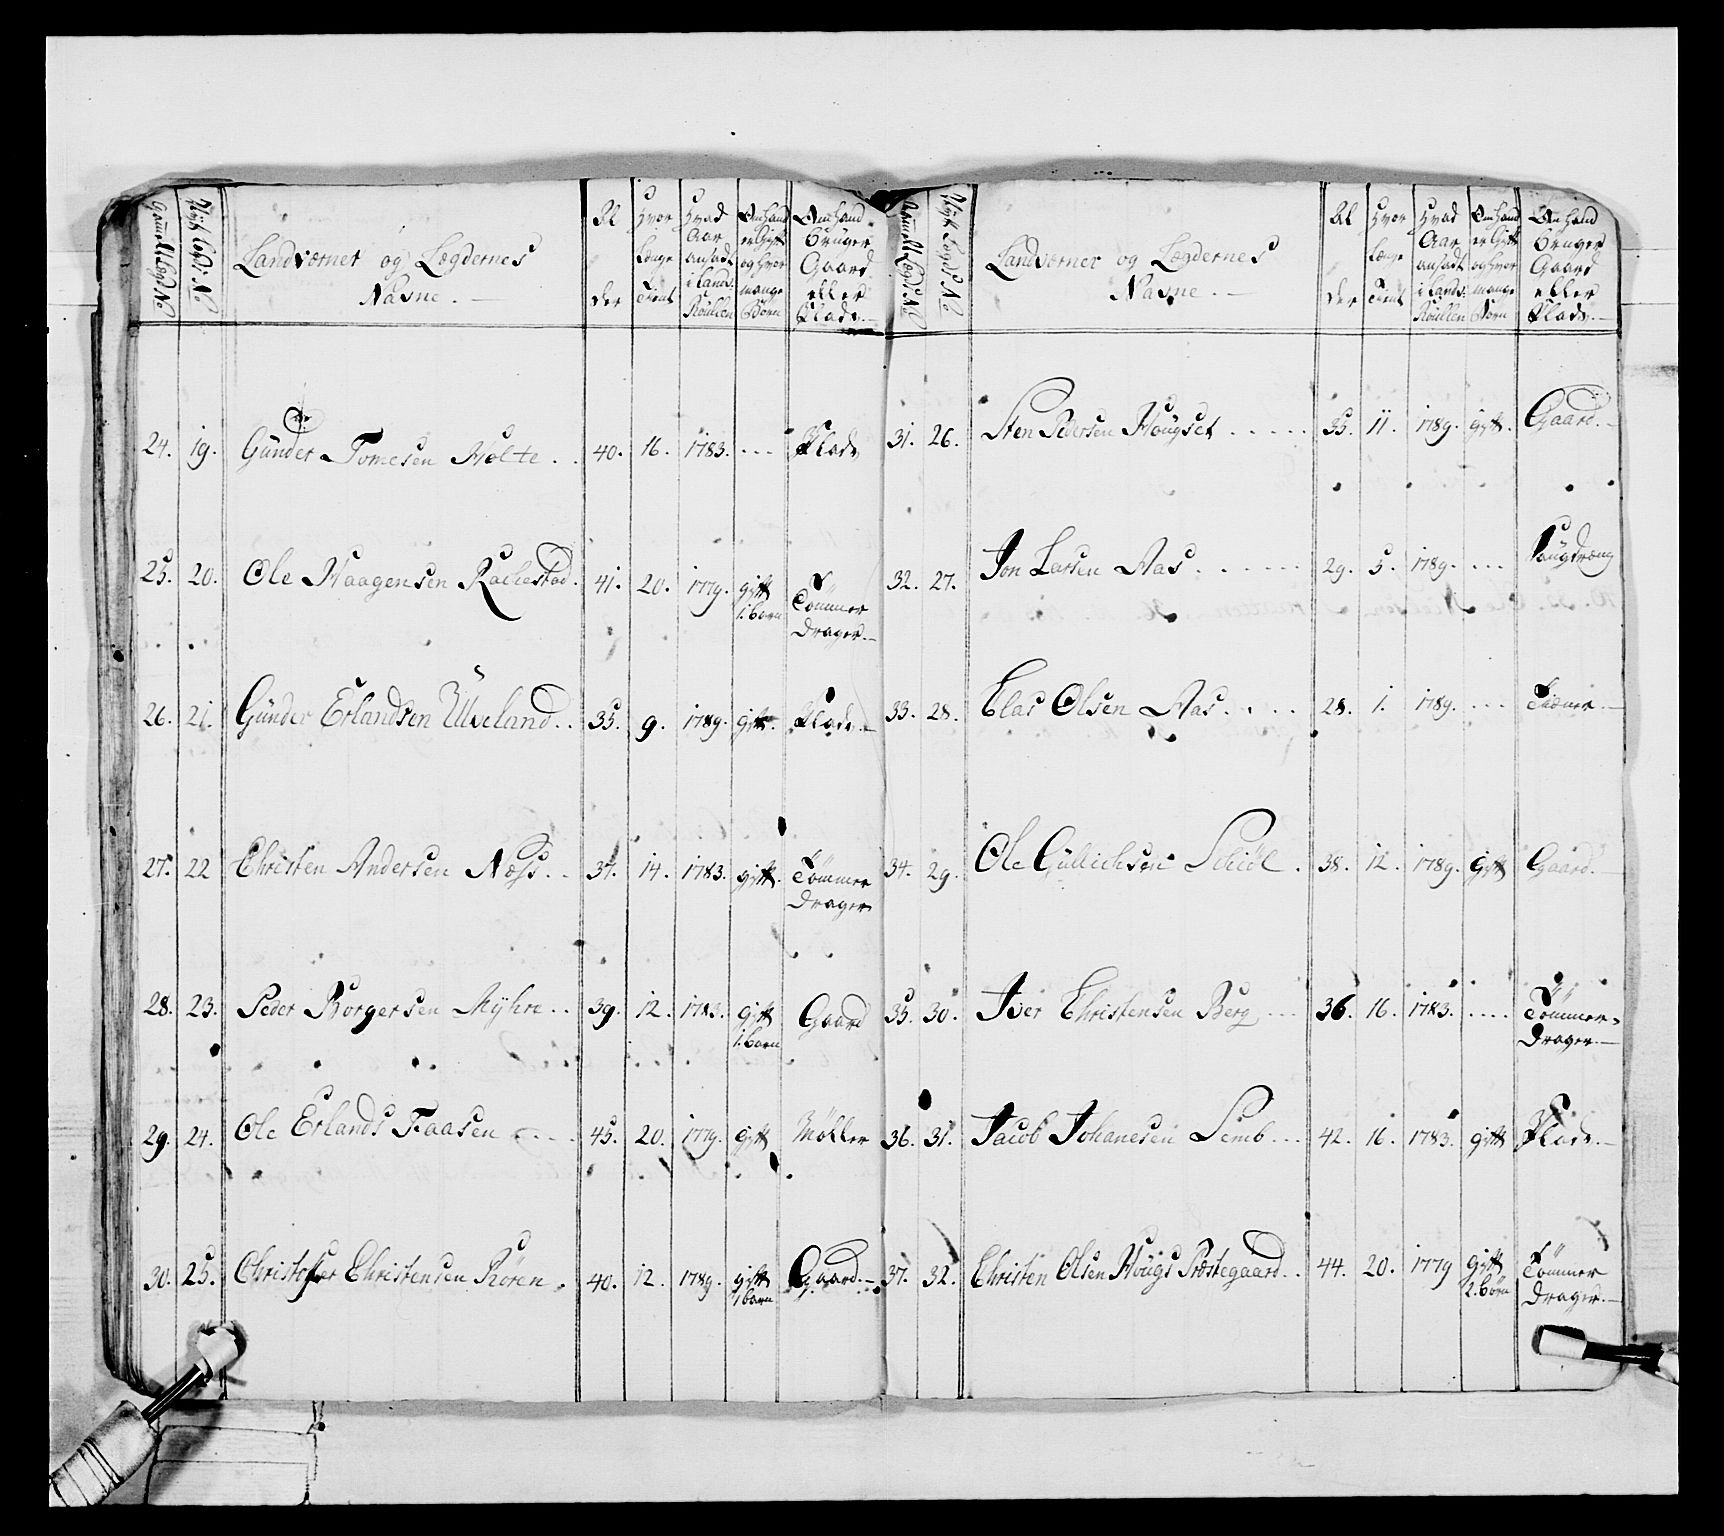 Gamelt Lægd No
Nyt Lægds No
Landværnet og Lægdernes
Navne. —
Al
der
Hvor
Længe
Tient
Hvad
Aar
ansadt
i Lands:
Roullen
Om hand
er Gift
og hvor
mange
Børn
Om hand
bruger
Gaard
eller
Plads. —
24. 19. Gunder Tomesen Holte . . 40. 16. 1783. ... Plads
25. 20. Ole Haagensen Rachestad. 41. 20. 1779. gift
1. barn
Tømmer
Drager. —
26. 21. Günder Erlandsen Ulveland . . 35. 9. 1789. gift. Plads. —
27. 22 Christen Andersen Næss. . . 37. 14. 1783. gift. Tømmer
Drager
28. 23. Peder Borgersen Myhre. . 39. 12. 1783. gift
1. barn
Gaard
29. 24. Ole Erlands Faasen . . . . 45. 20. 1779. gift Møller
30. 25. Christoffer Christensen Røren . 40. 12. 1789. gift
1 barn
Gaard. —
Gamelt Lægd No
Nyt Lægds No
Landværnet og Lægdernes
Navne. —
Al
der
Hvor
Længe
Tient
Hvad
Aar
ansadt
i Lands:
Roullen
Om hand
er Gift
og hvor
mange
Børn
Om hand
bruger
Gaard
eller
Plads. —
31. 26. Sten Pedersen Hougset . . . . . 35. 11. 1789. gift. Gaard. —
32. 27. Jon Larsen Aas . . . . . . 29. 5. 1789. ...
33. 28. Clas Olsen Aas . . . . 28. 1. 1789. ... Tiener. —
34. 29. Ole Gullichsen . 38. 12. 1789. gift Gaard. —
35. 30. Iver Christensen Berg . . . 36. 16. 1783. .... Tømmer-
Drager. —
36. 31. Jacob Johanesen Semb . . . 42. 16. 1783. gift Plads. —
37. 32. Christen Olsen Hougs Præstegaard . . 44. 20. 1779 gift
2. børn
Tømmer
Drager. —